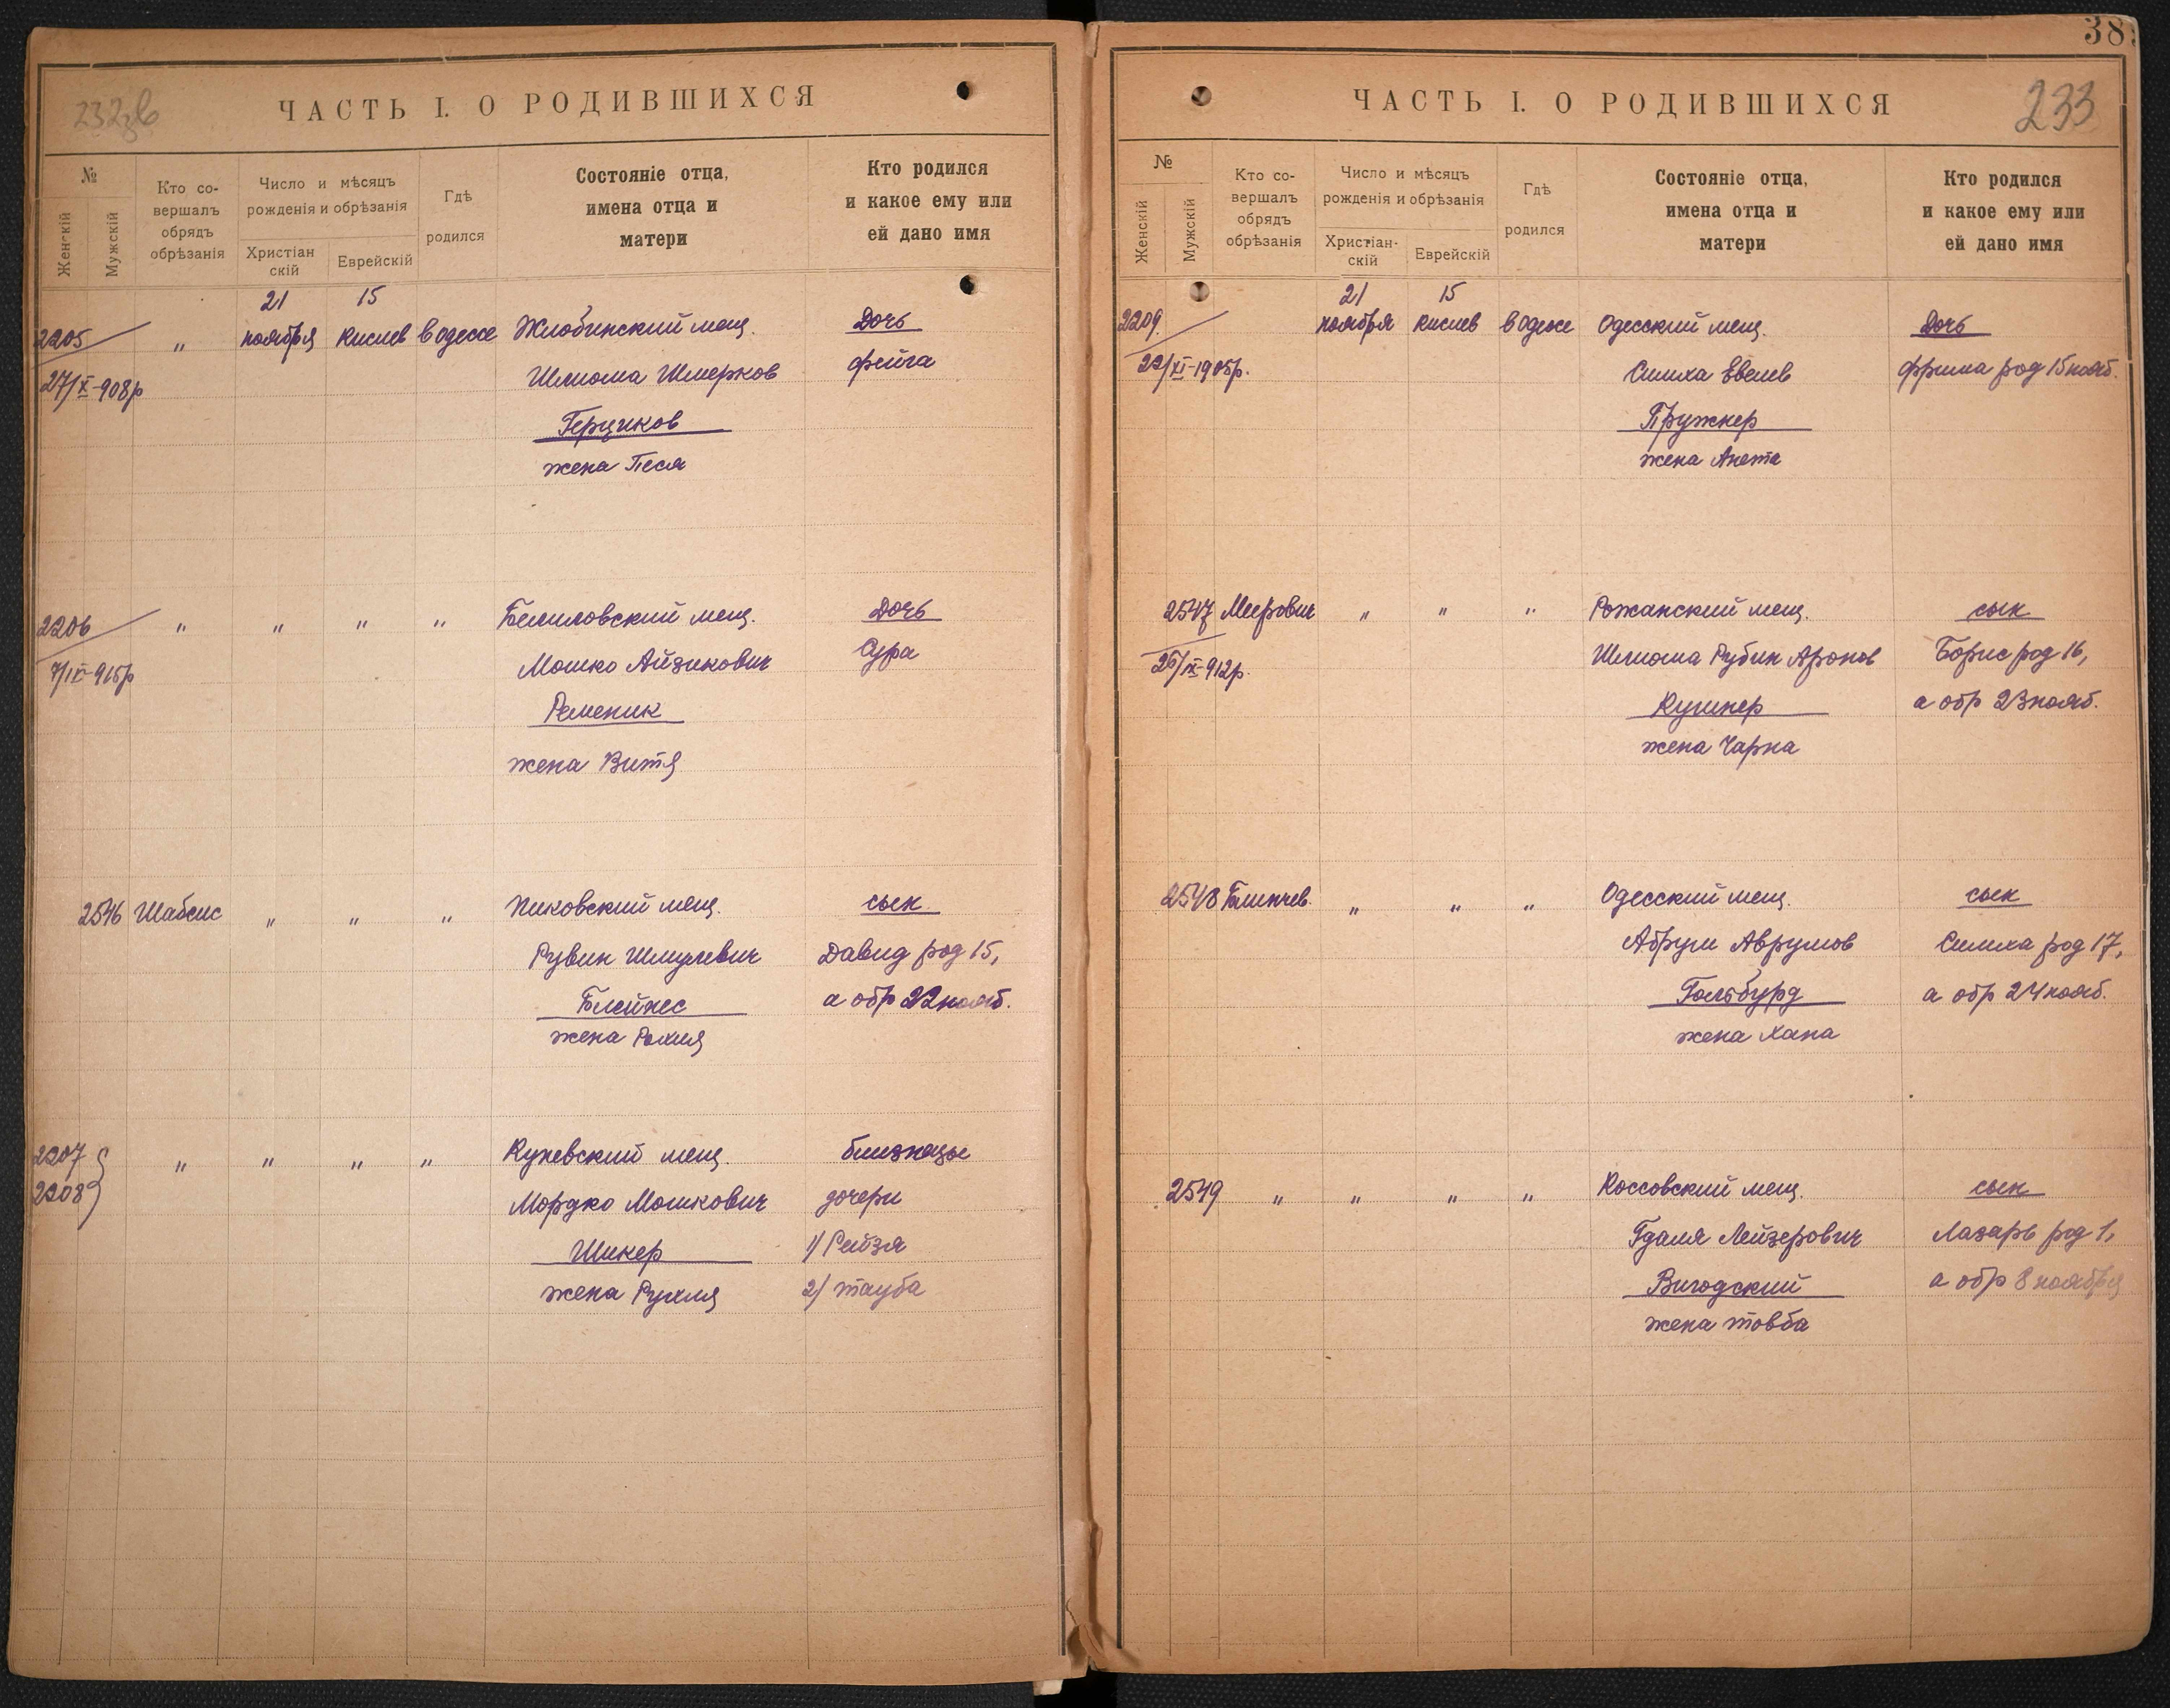 232 зв
ЧАСТЬ I. О РОДИВШИХСЯ
№
Женскій
Мужскій
Кто со-
вершалъ
обрядъ
обрѣзанія
Число и мѣсяцъ
рожденія и обрѣзанія
Христіан
скій
Еврейскій
Гдѣ
родился
Состояніе отца,
имена отца и
матери
Кто родился
и какое ему или
ей дано имя
21 15
2205 " ноября кислев в Одессе Жлобинский мещ. Дочь
27/X-908р Шлиома Шмерков фейга
Герциков
жена Песя
2206 " " " " Белиловский мещ. Дочь
7/IX-915р Мошко Айзикович Сура
Ременик
жена Витя
2546 Шабсис " " " Пиковский мещ. сын
Рувин Шмулевич Давид род 15,
Блейхес а обр 22 нояб.
жена Рахля
2207 " " " " Куневский мещ. близнецы
2208 Мордко Мошкович дочери
Шикер 1/ Рейзя
жена Рухля 2/ тауба
38
ЧАСТЬ I. О РОДИВШИХСЯ
233
№
Женскій
Мужскій
Кто со-
вершалъ
обрядъ
обрѣзанія
Число и мѣсяцъ
рожденія и обрѣзанія
Христіан-
скій
Еврейскій
Гдѣ
родился
Состояніе отца,
имена отца и
матери
Кто родился
и какое ему или
ей дано имя
21 15
2209. ноября кислев в Одессе Одесский мещ. Дочь
22/XI-1905р. Симха Евелев фрима род 15 нояб.
Пружнер
жена Анета
2547 Меерович " " " Рожанский мещ. сын
26/IX-912р. Шлиома Рубин Аронов Борис род 16,
Кушнер а обр 23 нояб.
жена Чарна
2548 " " " Одесский мещ. сын
Абрум Аврумов Симха род 17,
Гольбурд а обр 24 нояб.
жена Хана
2549 " " " " Коссовский мещ. сын
Гдаля Лейзерович Лазарь род 1,
Вигодский а обр 8 ноября
жена товба